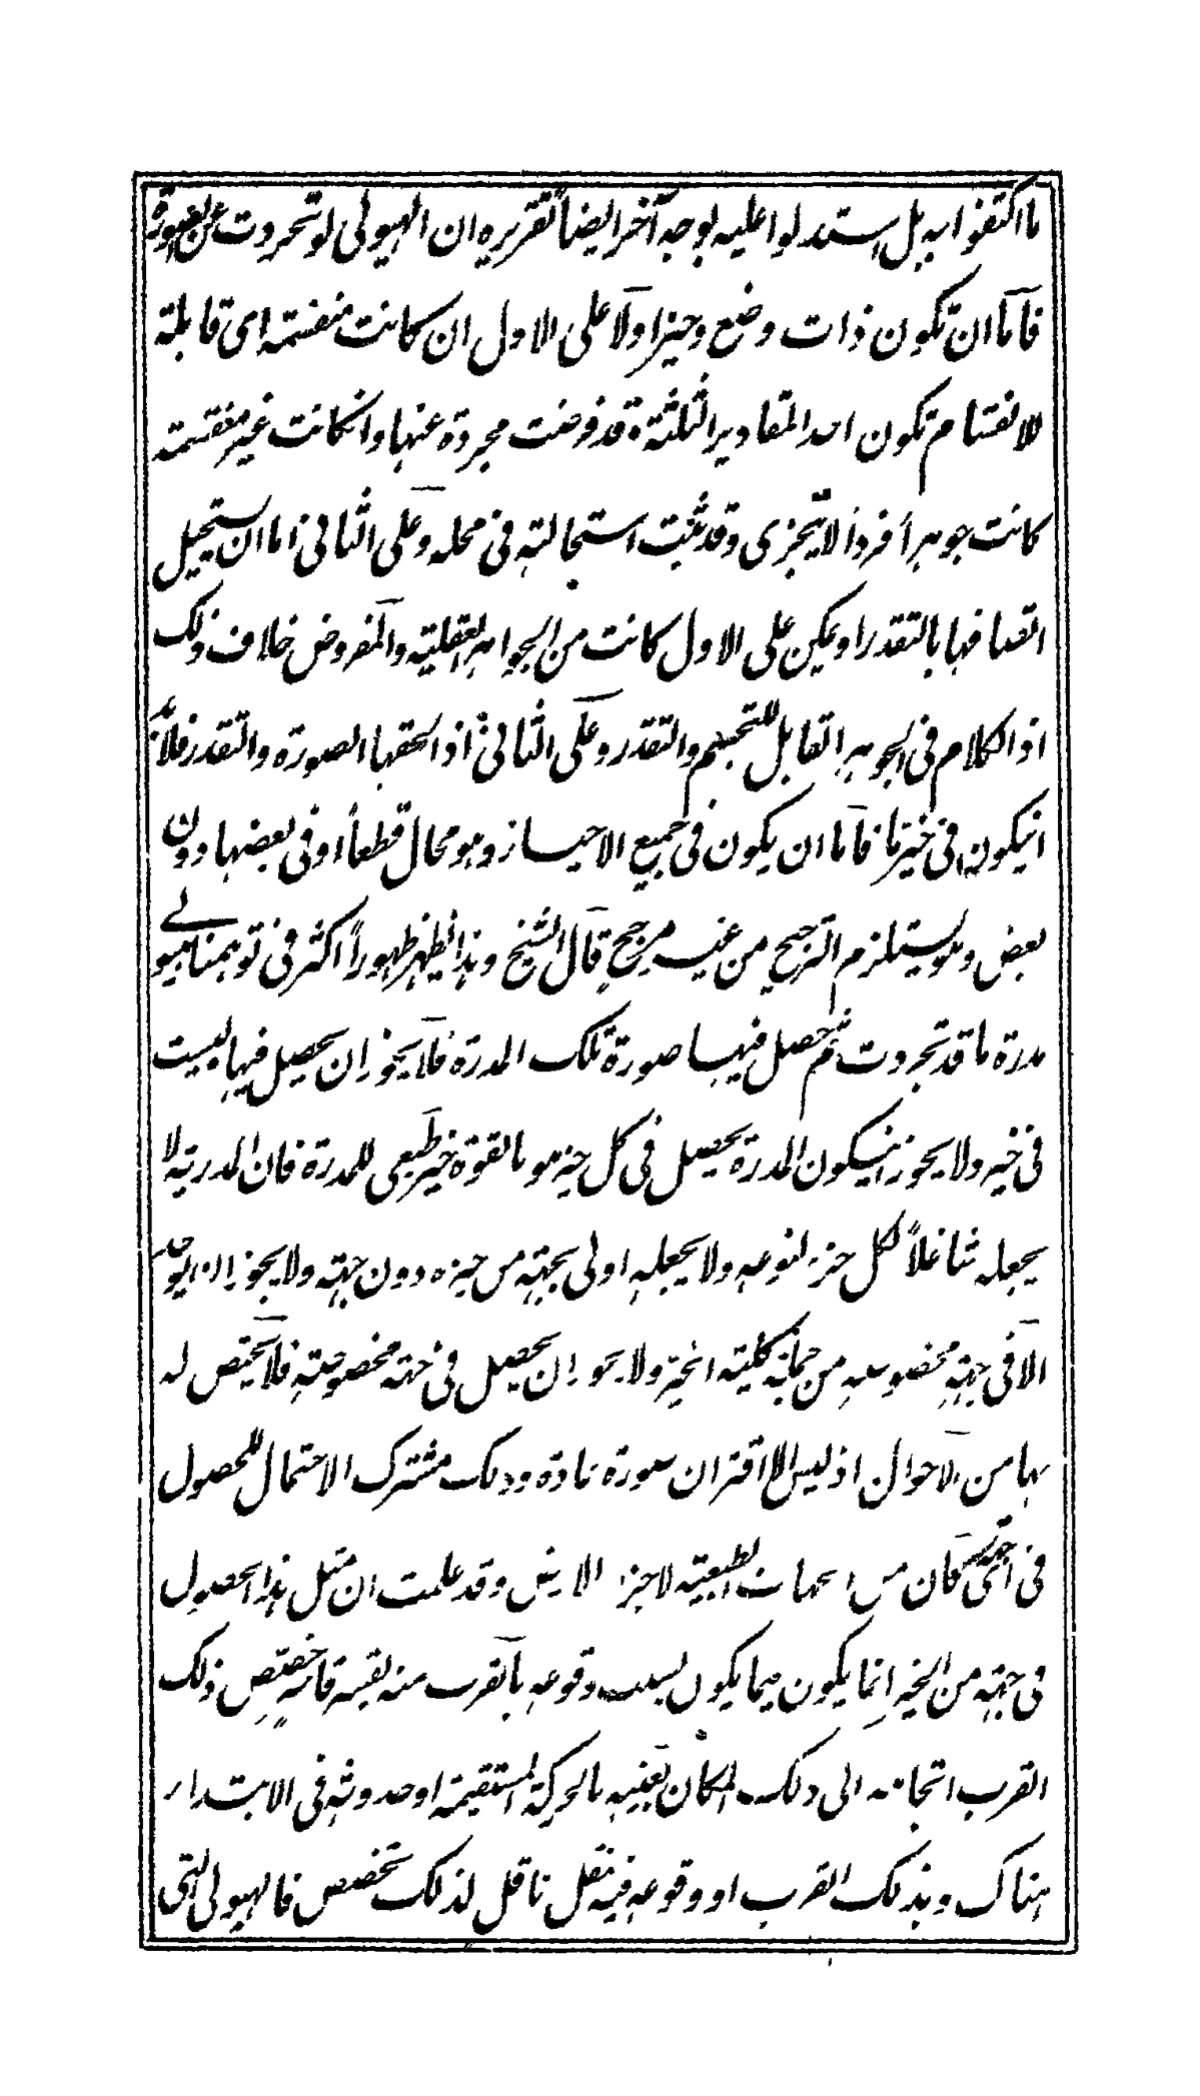 ما اكتفوا به بل استدلوا عليه بوجه آخر ايضاً تقريره ان الهيولى لو تجردت عن الصورة
فاما ان تكون ذات وضع وحيز اولا على الاول ان كانت منقسمة اى قابلة
للانقسام تكون احد المقادير الثلثة وقد فرضت مجردة عنها وانكانت غير منقسمة
كانت جوهراً فرداً لا يتجزى وقد ثبت استحالته فى محله وعلى الثانى اما ان يستحيل
اتصافها بالتقدر او يمكن على الاول كانت من الجواهر العقلية والمفروض خلاف ذلك
اذ الكلام فى الجوهر القابل للتجسم والتقدر وعلى الثانى اذ الحقها الصورة والتقدر فلا بد
انيكون فى حيز ما فاما ان يكون فى جميع الاحياز وهو محال قطعاً او فى بعضها دون
بعض وهو يستلزم الترجيح من غير مرجح قال الشيخ وهذا يظهر ظهوراً اكثر فى توهمنا هيولى
مدرة ما قد تجردت ثم حصل فيها صورة تلك المدرة فلا يجوز ان يحصل فيها ليست
فى حيز ولا يجوز انيكون المدرة يحصل فى كل حيز هو بالقوة حيز طبعى للمدرة فان المدرية لا
يجعله شاغلاً لكل حيز لنوعه ولا يجعله اولى بجهة من حيزه دون جهة ولا يجوز ان يوجد
الا فى جهة مخصوصه من جملة كلية الحيز ولا يجوز ان يحصل فى جهة مخصوصة فلا يختص له
بها من الاحوال اذ ليس الا اقتران صورة بمادة وذلك مشترك الاحتمال للحصول
فى اى كان من الجهات الطبيعية لاجزاء الارض وقد علمت ان مثل هذا الحصول
فى جهة من الحيز انما يكون فيما يكون بسبب وقوعه بالقرب منه بقسر قاسر خصص ذلك
القرب اتجاهه الى ذلك المكان بعينه بالحركة المستقيمة او حدوثه فى الابتداء
هناك وبذلك القرب او وقوعه فيه بنقل ناقل لذلك تخصص فالهيولى التى